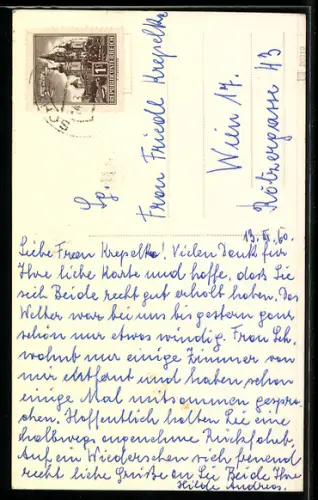 REPUBLIK ÖSTERREICH
Sg.
Frau Friedl Krepelka
Wien 17.
Rötzergasse 43
13. VI. 60.
Liebe Frau Krepelka! Vielen Dank für
Ihre liebe Karte und hoffe, dass Sie
sich Beide recht gut erholt haben. Das
Wetter war bei uns bis gestern ganz
schön nur etwas windig. Frau Lek.
wohnt nur einige Zimmer von
mir entfernt und haben schon
einige Mal mitsammen gespro-
chen. Hoffentlich hatten Sie eine
halbwegs angenehme Rückfahrt.
Auf ein Wiedersehen sich freuend
recht liebe Grüße an Sie Beide Ihre
Hilde Andreas.